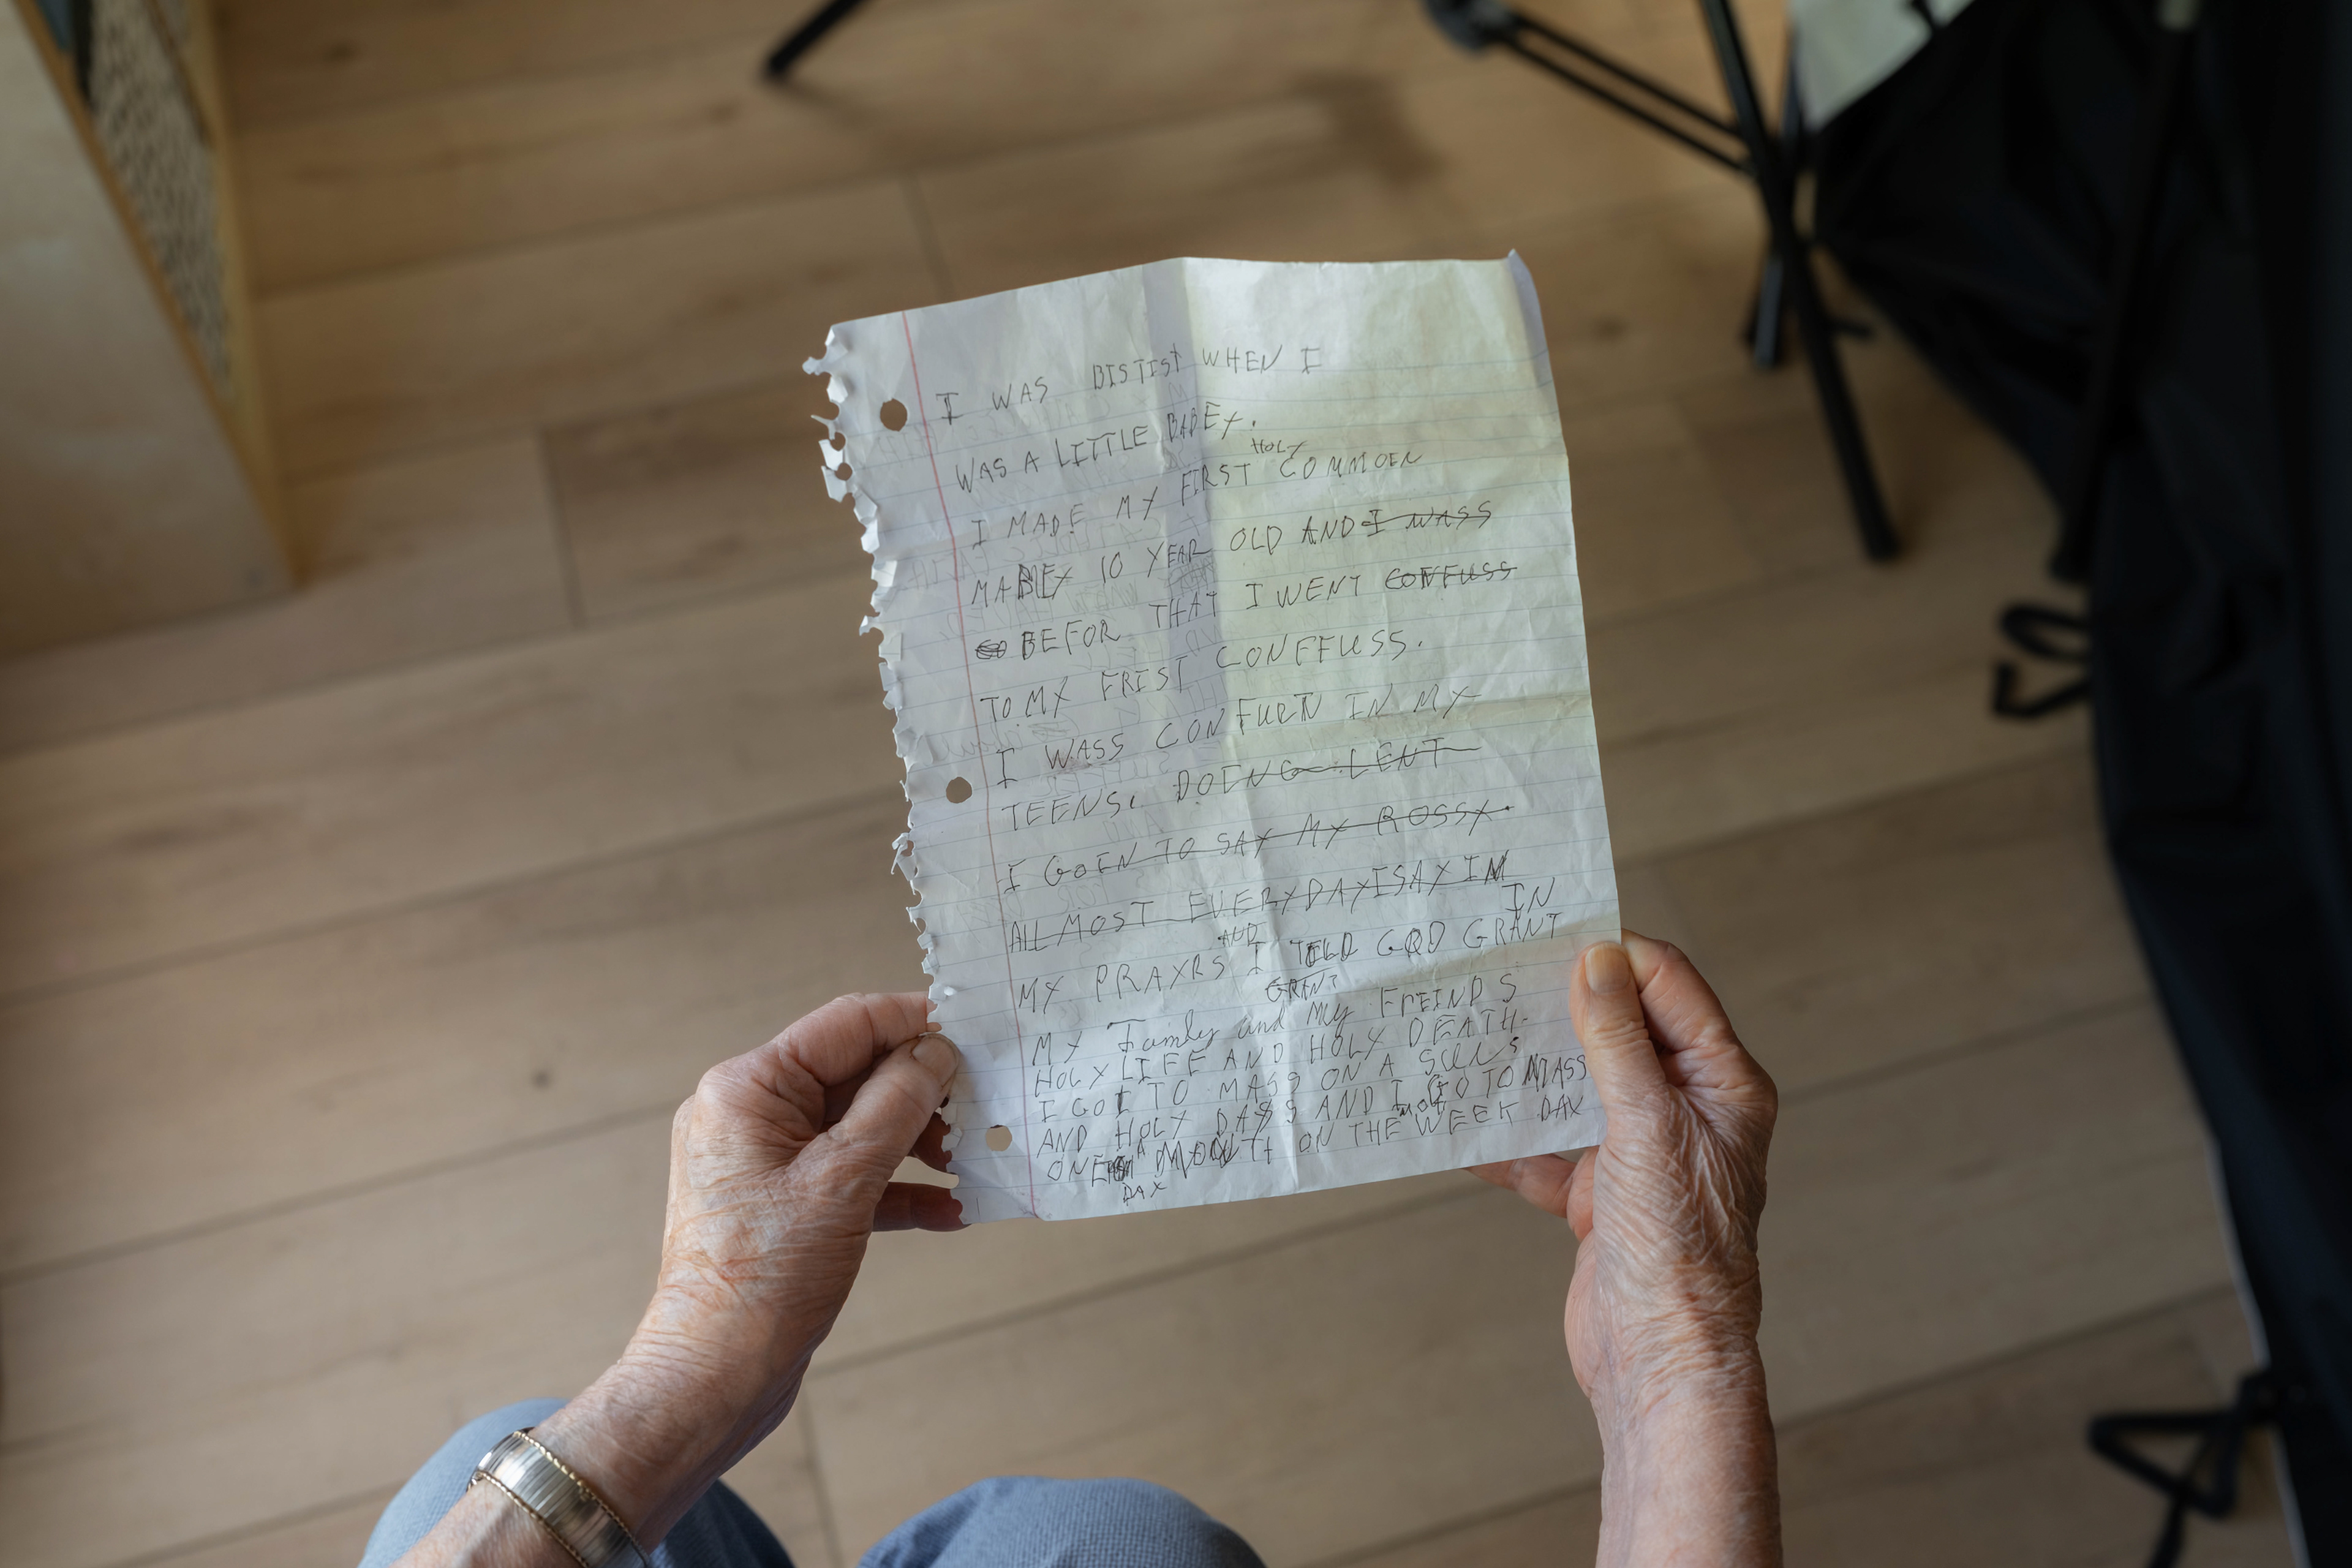 I WAS BISTIST WHEN I
WAS A LITTLE BABEY.
HOLY
I MADE MY FIRST COMMOEN
MABEY 10 YEAR OLD AND I WASS
BEFOR THAT I WENT CONFUSS
TO MY FRIST CONFFUSS.
I WASS CONFUEN IN MY
TEENS. DOING LENT
I GOEN TO SAY MY ROSSY.
ALLMOST EVERYDAY I SAY IM
IN
AND
MY PRAYRS I TELD GOD GRANT
GRANT
MY Famley and My FREINDS
HOLY LIFE AND HOLY DEATH.
I GO TO MASS ON A SUNS
AND HOLY DASS AND I GO TO MASS
ONE A MONTH ON THE WEEK DAY
DAY